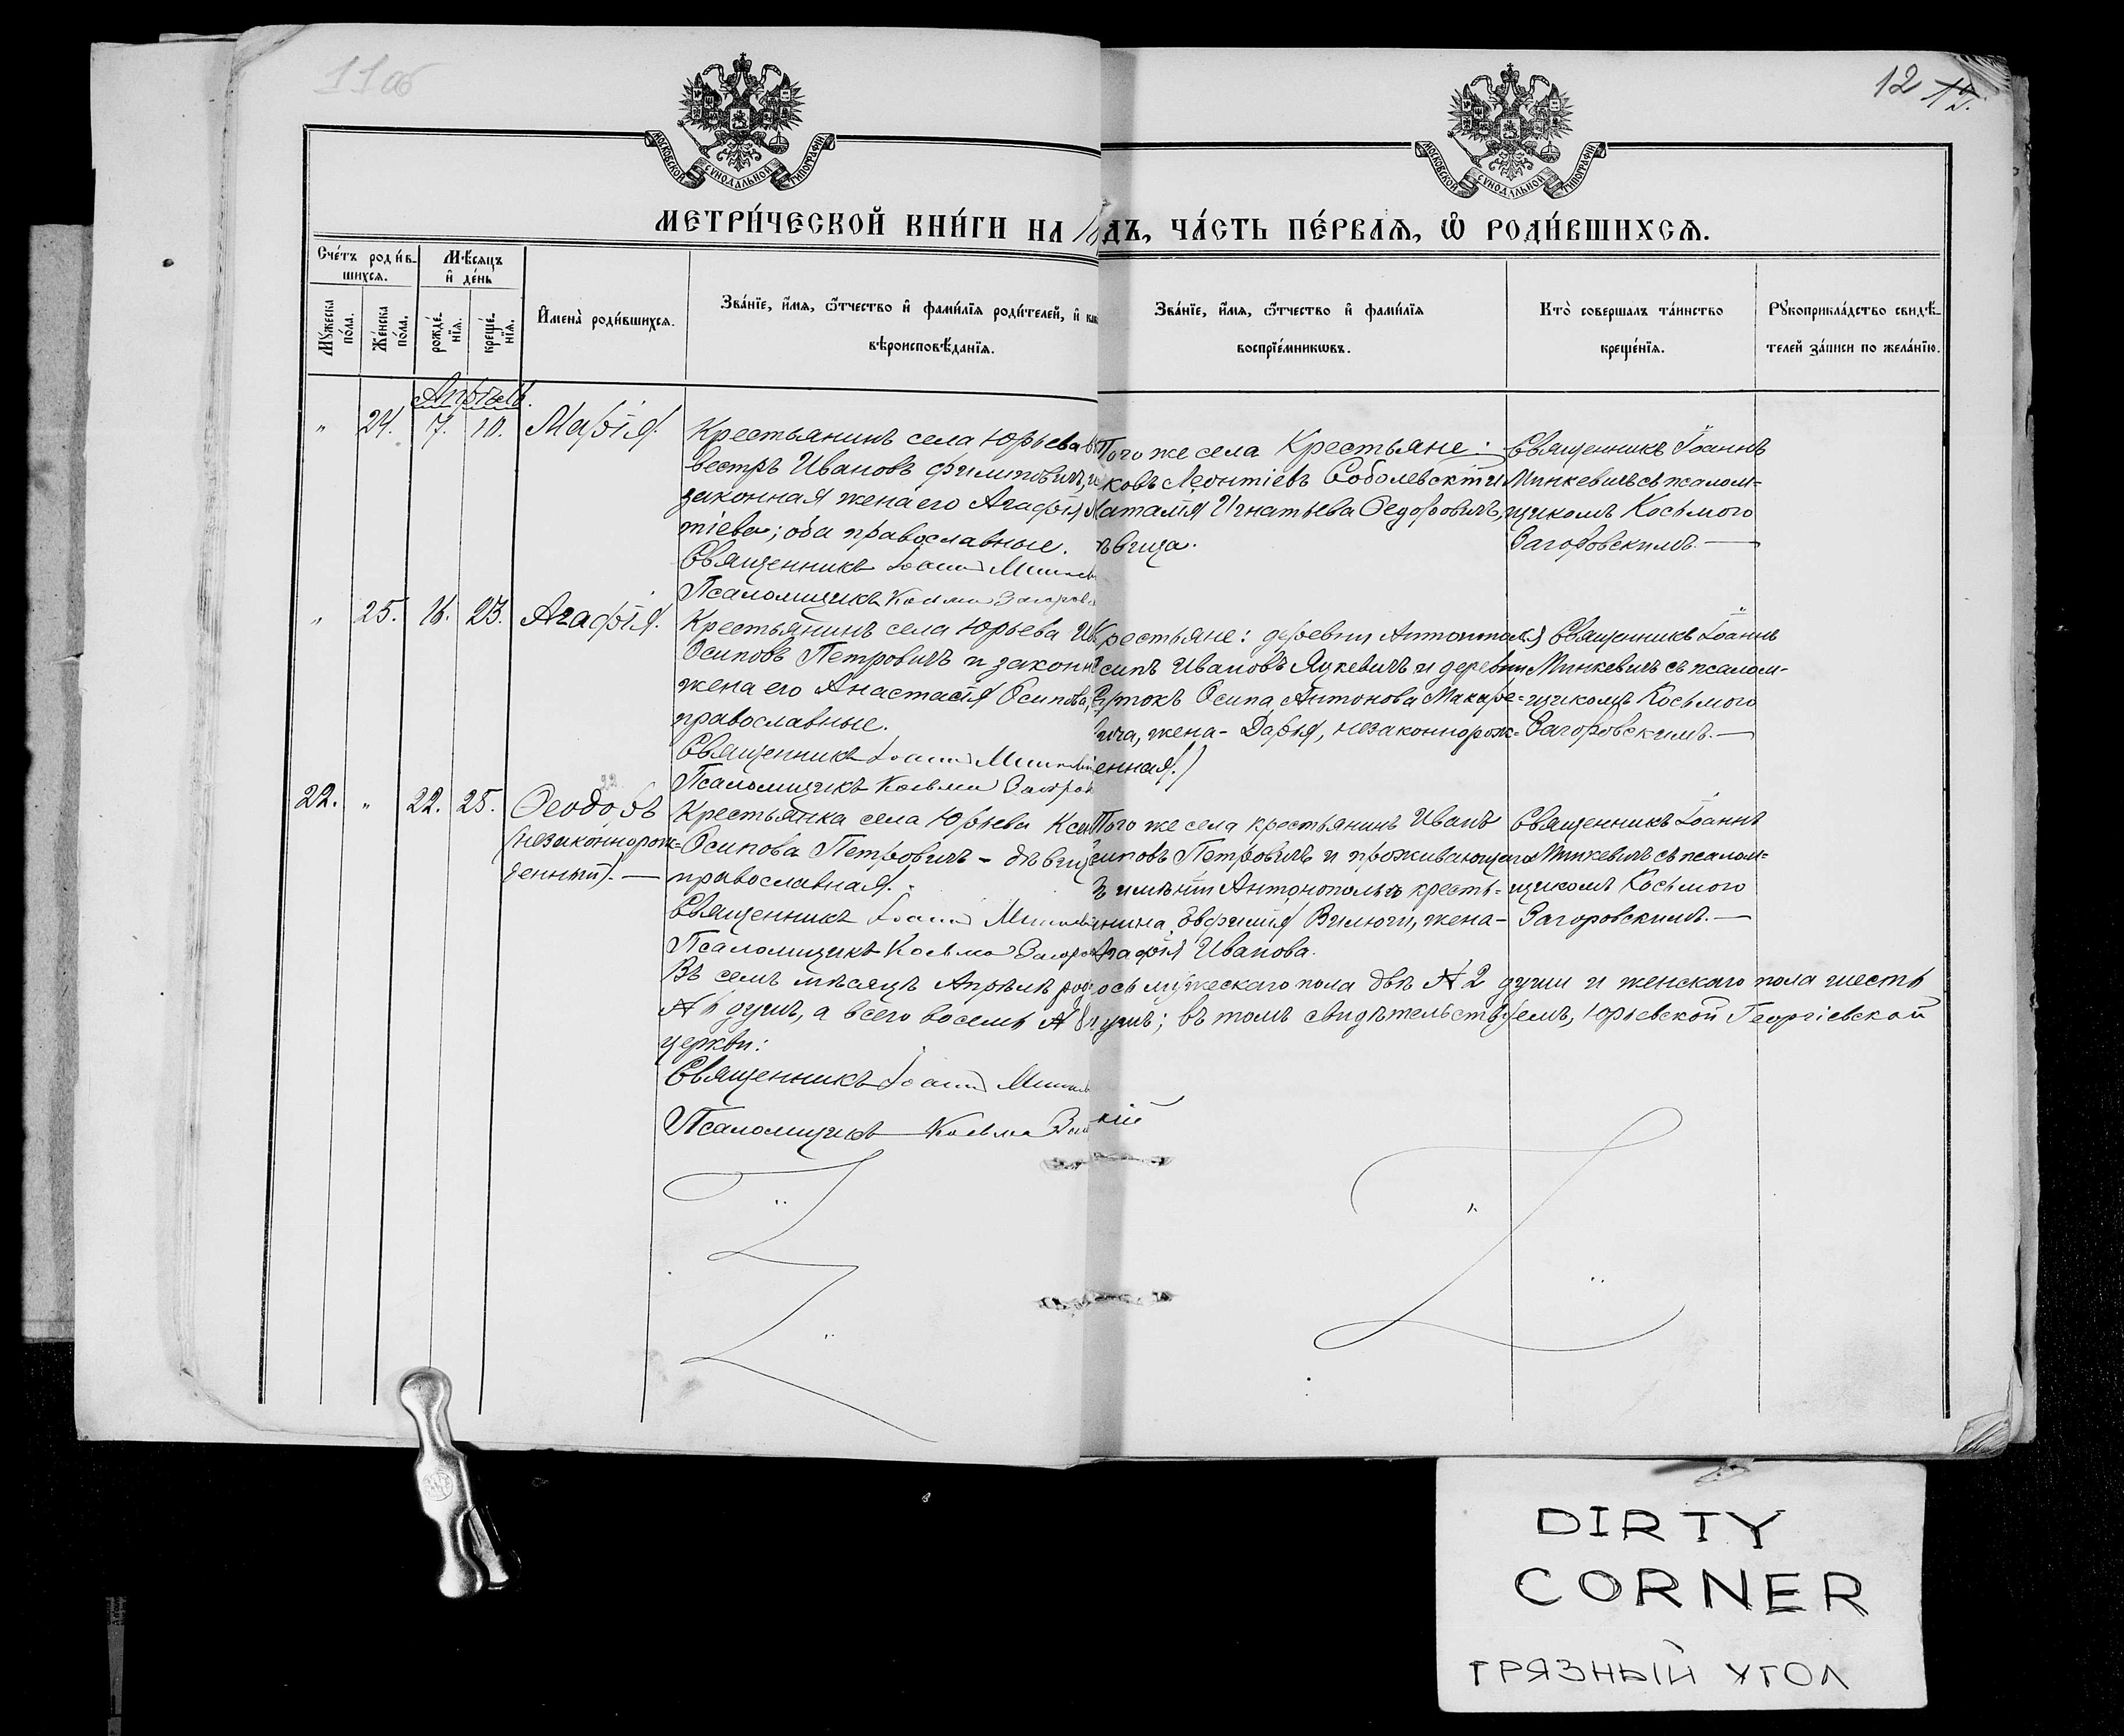 11об
12 12.
МОСКОВСКОЙ СУНОДАЛЬНОЙ ТИПОГРАФІИ
МОСКОВСКОЙ СУНОДАЛЬНОЙ ТИПОГРАФІИ
МЕТРИ́ЧЕСКОЙ КНИ́ГИ НА 18
ДЪ, ЧА́СТЬ ПЕ́РВАЯ, Ѡ РОДИ́ВШИХСЯ.
Сче́тъ роди́в-
шихся.
Мѣ́сяцъ
и҆ де́нь
Му́жеска
по́ла.
Же́нска
по́ла.
рожде́-
нїя.
креще́-
нїя.
И҆мена̀ роди́вшихся.
Зва́нїе, и҆́мя, ѻ҆́тчество и҆ фами́лїя роди́телей, и҆ как
вѣроисповѣ́данїя.
Зва́нїе, и҆́мя, ѻ҆́тчество и҆ фами́лїя
воспрїе́мникωвъ.
Кто̀ соверша́лъ та́инство
креще́нїя.
Рꙋкоприкла́дство свидѣ́-
телей за́писи по жела́нїю.
Апрѣль.
" 24. 7. 10. Марія.
Крестьянинъ села Юрьева
вестръ Ивановъ Филиповичъ, и
законная жена его Агафія
тіева; оба православные.
Священникъ Іоаннъ Минкев
Псаломщикъ Косьма Загоров
Того же села Крестьяне:
ковъ Леонтіевъ Соболевскій и
аталія Игнатьева Ѳедоровичъ,
ѣвица.
Священникъ Іоаннъ
Минкевичъ съ псалом=
щикомъ Косьмою
Загоровскимъ.—
" 25. 16. 23. Агафія.
Крестьянинъ села Юрьева Ив
Осиповъ Петровичъ и законн
жена его Анастасія Осипова,
православные.
Священникъ Іоаннъ Минкеви
Псаломщикъ Косьма Загоров
Крестьяне: деревни
сипъ Ивановъ Яцкевичъ и деревни
Осипа Антонова Макаре=
вича, жена- Дарья, незаконнорож=
енная.)
Священникъ Іоаннъ
Минкевичъ съ псалом-
щикомъ Косьмою
Загоровскимъ.—
22. " 22. 25. Ѳеодоръ
(незаконнорож=
денный).—
Крестьянка села Юрьева Ксе
Осипова Петровичъ - дѣвица
православная.
Священникъ Іоаннъ Минкеви
Псаломщикъ Косьма Загоров
Того же села крестьянинъ Иванъ
сиповъ Петровичъ и проживающаго
въ имѣніи Антонополь кресть=
нина Евфимія Вилючи, жена-
Агафія Иванова.
Священникъ Іоаннъ
Минкевичъ съ псалом=
щикомъ Косьмою
Загоровскимъ.—
Въ семъ мѣсяцѣ Апрѣлѣ род ось мужескаго пола двѣ № 2 души и женскаго пола шесть
№ 6 душъ, а всего восемь № 8 душъ; въ томъ свидѣтельствуемъ, Юрьевской Георгіевской
церкви:
Священникъ Іоаннъ Минкев
Псаломщикъ Косьма Заг
кій
DIRTY
CORNER
ГРЯЗНЫЙ УГОЛ